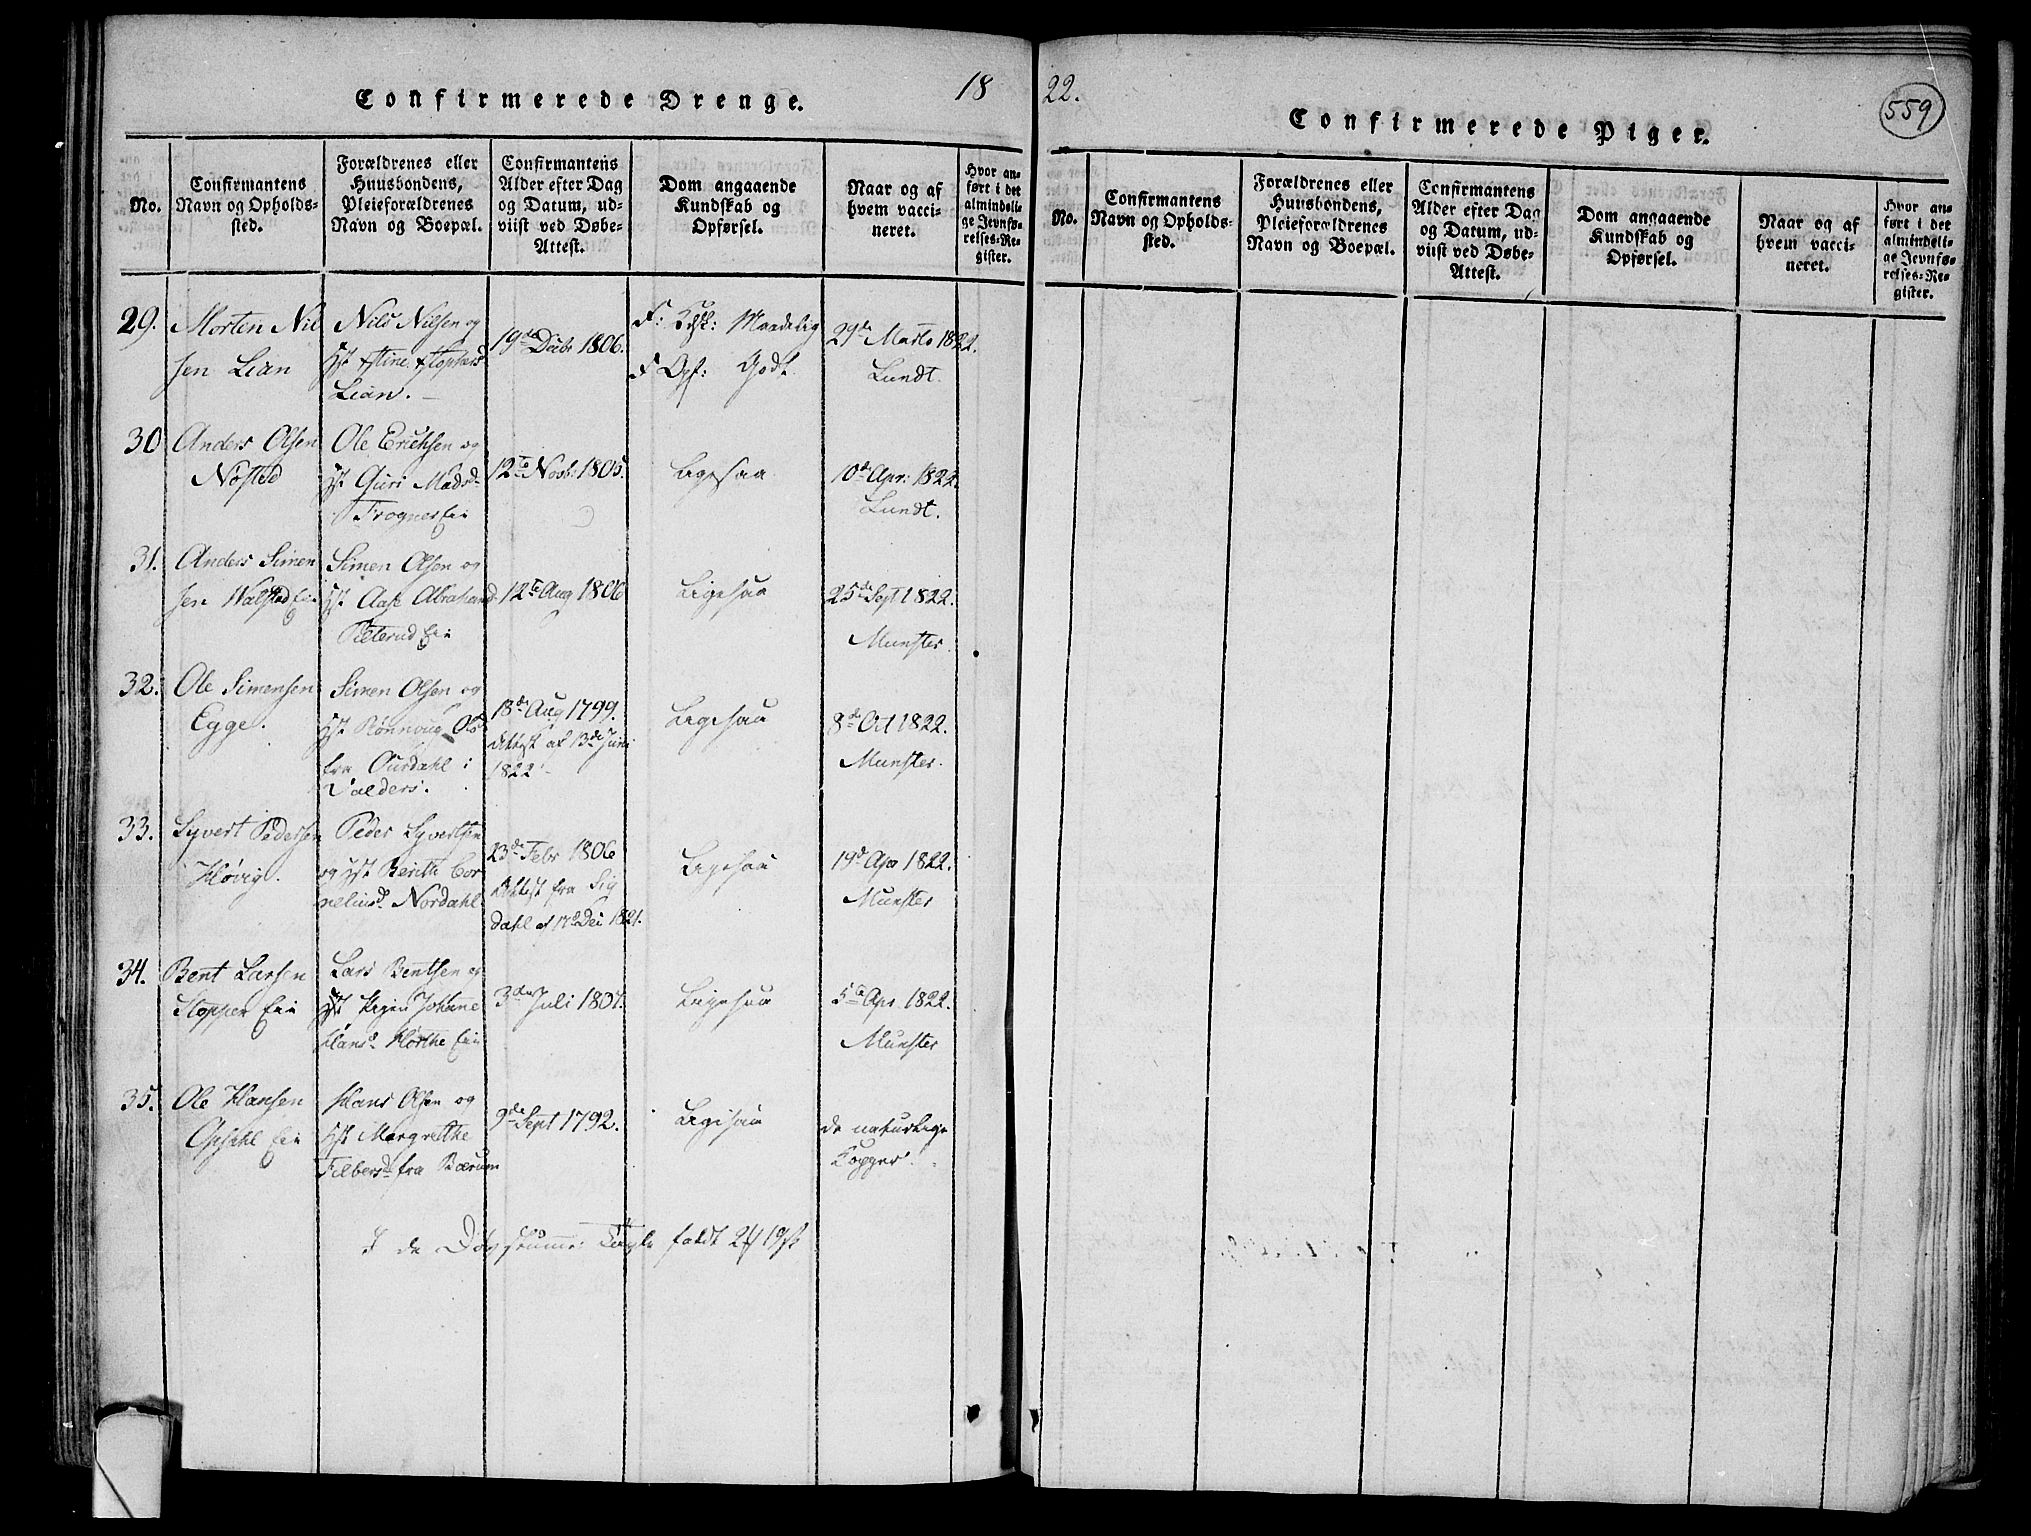 Confirmerede Drenge.
18
No.
Confirmantens Navn og Opholds-sted.
Forældrenes eller Huusbondens, Pleieforældrenes Navn og Boepæl.
Confirmantens Alder efter Dag og Datum, ud-viist ved Døbe-Attest.
Dom angaaende Kundskab og Opførsel.
Naar og af hvem vacci-neret.
Hvor an-ført i det almindeli-ge Jevnfø-relses-Re-gister.
29.
Morten Nil
sen Lian
Nils Nilsen og
Lian.
19de Decbr 1806.
F: Kdsk: Maadelig
F Opf: Godt
29de Marts 1822.
Lundt.
30
Anders Olsen
Nøsted
Ole Erichsen og
Hst Guri Madsd
Trogner Eie
12te Novbr 1805.
Ligesaa
10de Apr: 1822.
Lundt.
31.
Anders Simen
sen Walsted Eie
Simen Olsen og
Hst Aase Abrahamd
Eie
12te Aug 1806
Ligesaa
25de Sept 1822.
Munster.
32.
Ole Simensen
Egge.
Simen Olsen og
Hst Rønnoug Olsd
fra Ourdahl i
Valders.
18de Aug 1799.
Attest af 13de Juni
1822
Ligesaa
8de Oct 1822.
Munster.
33.
Syvert Pedersen
Høvig.
Peder Syvertsen
og Hst Berith Cor
neliusd Nordahl
23de Febr 1806
Attest fra Sig
dahl af 17d Dec 1821.
Ligesaa
19de Apr 1822.
Munster
34.
Bent Larsen
Stoppen Eie
Lars Bentsen og
Hst Pigen Johanne
Hansd Horthe Eie
3die Juli 1807.
Ligesaa
5te Apr 1822.
Munster
35.
Ole Hansen
Opsahl Eie
Hans Olsen og
Hst Margrethe
fra Bærum
9de Sept 1792.
Ligesaa
de naturlige
Kopper.
I de faldt 2
22.
Confirmerede Piger.
559
No.
Confirmantens Navn og Opholds-sted.
Forældrenes eller Huusbondens, Pleieforældrenes Navn og Boepæl.
Confirmantens Alder efter Dag og Datum, ud-viist ved Døbe-Attest.
Dom angaaende Kundskab og Opførsel.
Naar og af hvem vacci-neret.
Hvor an-ført i det almindeli-ge Jevnfø-relses-Re-gister.